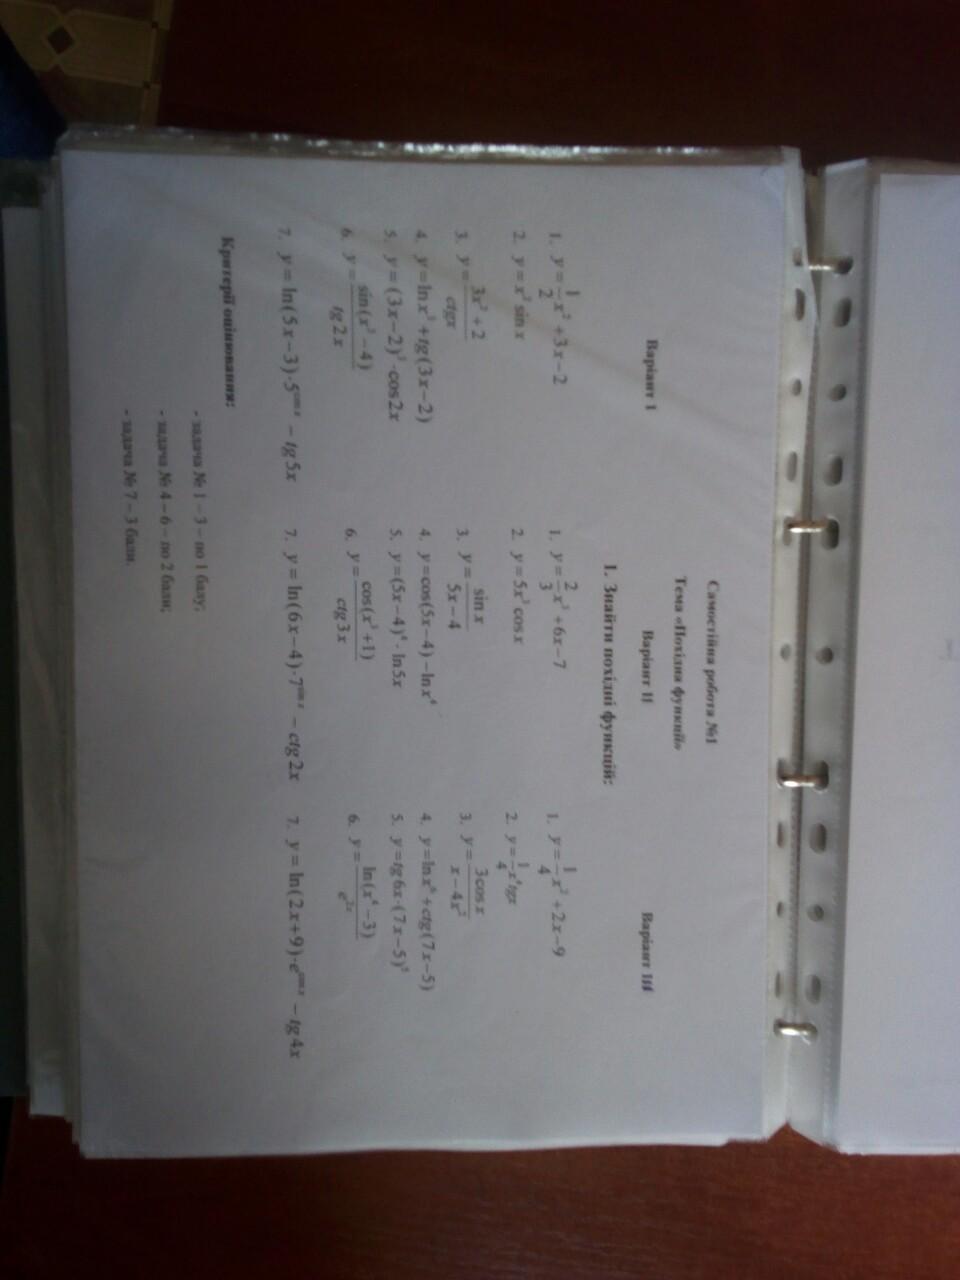 Самостійна робота №1
Тема «Похідна функції»
Варіант I Варіант II Варіант III
I. Знайти похідні функцій:
1. y = 1/2 x² + 3x − 2
2. y = x³ sin x
3. y = (3x² + 2)/(ctgx)
4. y = ln x³ + tg(3x − 2)
5. y = (3x − 2)³ · cos 2x
6. y = sin(x³ − 4)/(tg 2x)
7. y = ln(5x − 3) · 5^(cos x) − tg 5x
1. y = 2/3 x³ + 6x − 7
2. y = 5x³ cos x
3. y = sin x/(5x − 4)
4. y = cos(5x − 4) − ln x⁴
5. y = (5x − 4)⁴ · ln 5x
6. y = cos(x³ + 1)/(ctg 3x)
7. y = ln(6x − 4) · 7^(sin x) − ctg 2x
1. y = 1/4 x² + 2x − 9
2. y = 1/4 x⁴ tgx
3. y = 3cos x/(x − 4x²)
4. y = ln x⁶ + ctg(7x − 5)
5. y = tg 6x · (7x − 5)⁵
6. y = ln(x⁴ − 3)/(e^(2x))
7. y = ln(2x + 9) · e^(cos x) − tg 4x
Критерії оцінювання:
- задача № 1 – 3 – по 1 балу;
- задача № 4 – 6 – по 2 бали;
- задача № 7 – 3 бали.